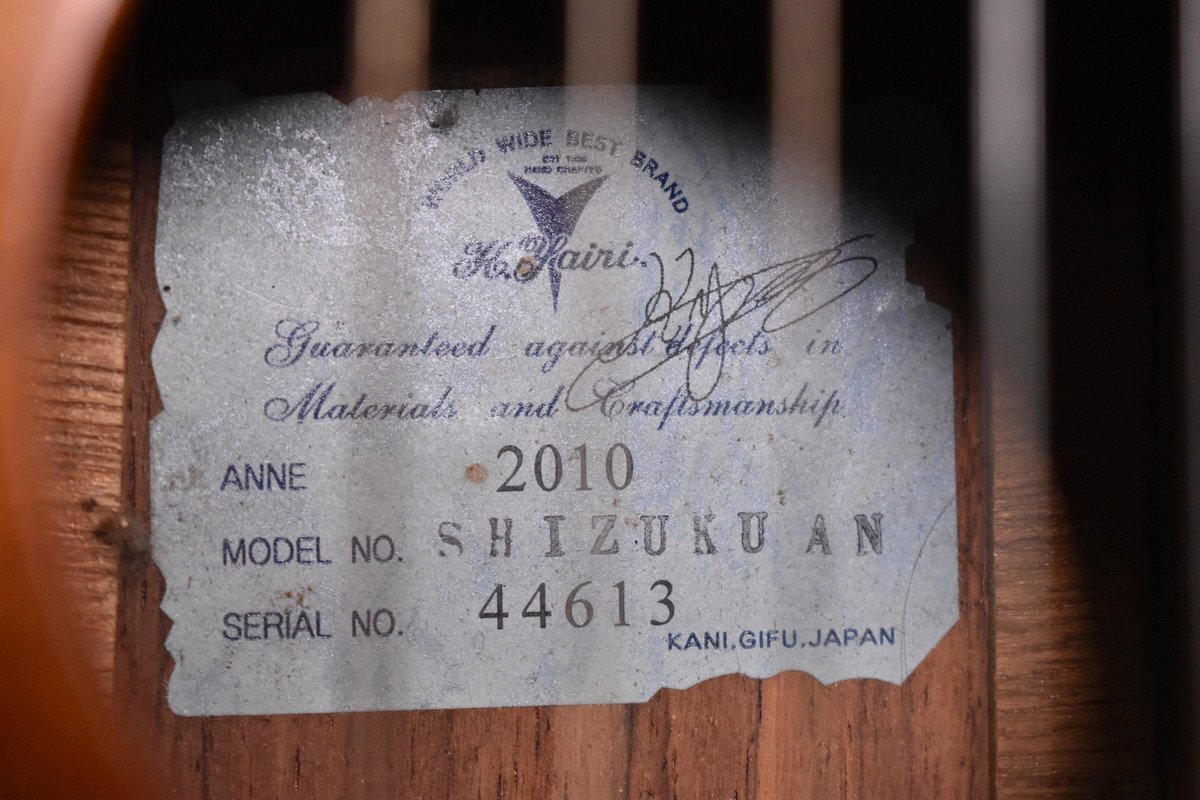 WORLD WIDE BEST BRAND
HAND CRAFTED
K. Yairi.
Guaranteed against defects in
Materials and Craftsmanship
ANNE 2010
MODEL NO. SHIZUKU AN
SERIAL NO. 44613
KANI.GIFU.JAPAN